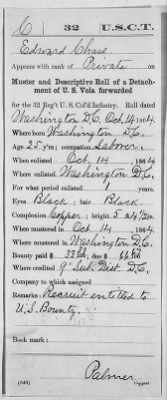 C 32 U.S.C.T.
Edward Chase
Appears with rank of Private on
Muster and Descriptive Roll of a Detach-
ment of U. S. Vols. forwarded
for the 32 Reg't U. S. Col'd Infantry. Roll dated
Washington D.C. Oct. 14, 1864.
Where born Washington D.C.
Age 25 y'rs; occupation Laborer
When enlisted Oct. 14, 1864.
Where enlisted Washington D.C.
For what period enlisted 1 years.
Eyes Black; hair Black.
Complexion Copper; height 5 ft. in.
When mustered in Oct 14, 1864.
Where mustered in Washington D.C.
Bounty paid $ 33 100; due $ 66 100
Where credited 9" Sub. Dist. D.C.
Company to which assigned
Remarks: Recruit entitled to
U.S. Bounty.
Book mark:
(340) Palmer
Copyist.